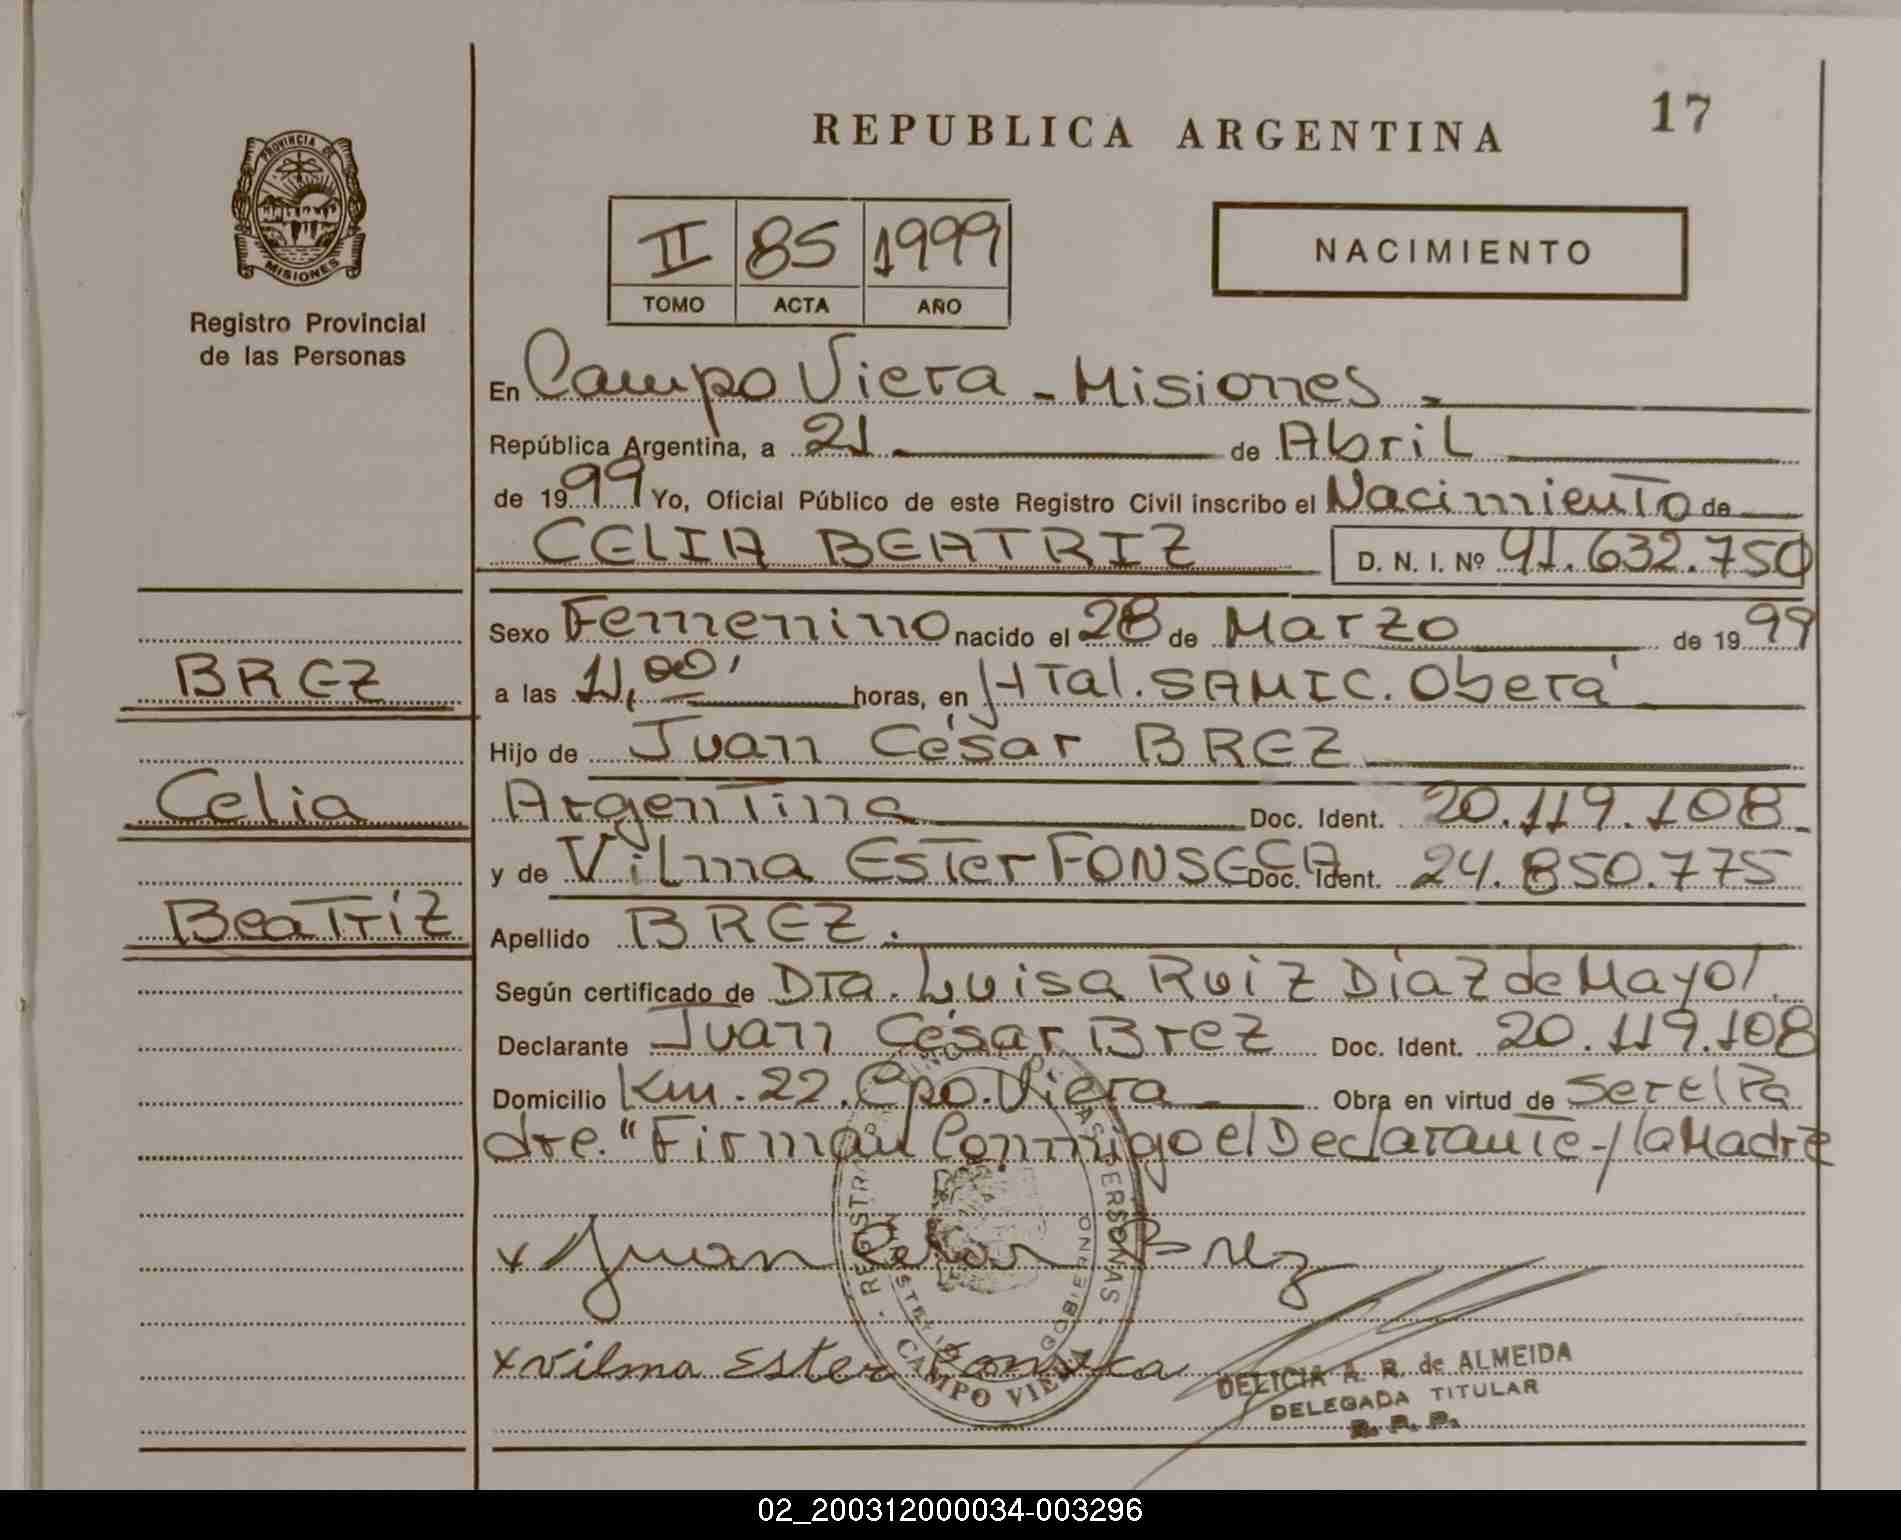 REPUBLICA ARGENTINA
17
PROVINCIA DE
MISIONES
Registro Provincial
de las Personas
II 85 1999
TOMO ACTA AÑO
NACIMIENTO
En Campo Viera - Misiones -
República Argentina, a 21 de Abril
de 1999 Yo, Oficial Público de este Registro Civil inscribo el Nacimiento de
CELIA BEATRIZ D. N. I. Nº 41.632.750
Sexo Femenino nacido el 28 de Marzo de 1999
a las 11,00' horas, en HTal. SAMIC. Oberá
Hijo de Juan César BREZ
Argentina Doc. Ident. 20.119.108
y de Vilma Ester FONSECA Doc. Ident. 24.850.775
Apellido BREZ.
Según certificado de Dra. Luisa Ruiz Díaz de Mayol
Declarante Juan César Brez Doc. Ident. 20.119.108
Domicilio Km. 22. Cpo. Viera Obra en virtud de Ser el Pa
dre." Firman Conmigo el Declarante y la Madre
BREZ
Celia
Beatriz
x Juan Cesar Brez
x Vilma Ester Fonseca
PERSONAS
GOBIERNO
CAMPO VIERA
DELICIA A. R. de ALMEIDA
DELEGADA TITULAR
R. P. P.
02_200312000034-003296